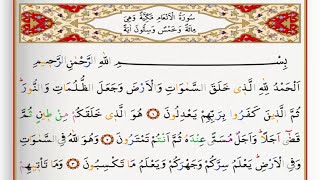 سُورَةُ الْاَنْعَامِ مَكِّيَّةٌ وَهِيَ
مِائَةٌ وَخَمْسٌ وَسِتُّونَ اٰيَةً
بِسْمِ اللّٰهِ الرَّحْمٰنِ الرَّحِيمِ
اَلْحَمْدُ لِلّٰهِ الَّذٖى خَلَقَ السَّمٰوَاتِ وَالْاَرْضَ وَجَعَلَ الظُّلُمَاتِ وَالنُّورَ
ثُمَّ الَّذٖينَ كَفَرُوا بِرَبِّهِمْ يَعْدِلُونَ ﴿١﴾ هُوَ الَّذٖى خَلَقَكُمْ مِنْ طٖينٍ ثُمَّ
قَضٰٓى اَجَلًا وَاَجَلٌ مُسَمًّى عِنْدَهُ ثُمَّ اَنْتُمْ تَمْتَرُونَ ﴿٢﴾ وَهُوَ اللّٰهُ فِى السَّمٰوَاتِ
وَفِى الْاَرْضِ يَعْلَمُ سِرَّكُمْ وَجَهْرَكُمْ وَيَعْلَمُ مَا تَكْسِبُونَ ﴿٣﴾ وَمَا تَاْتٖيهِمْ